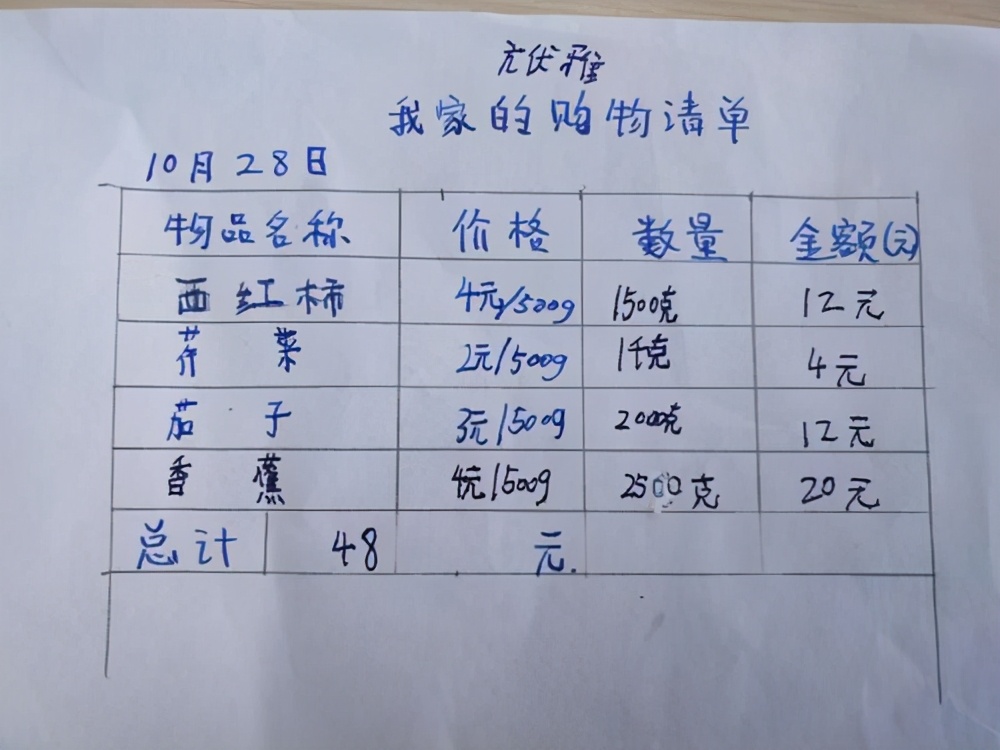 亢伏雅
我家的购物清单
10月28日
物品名称 价格 数量 金额(元)
西红柿 4元/500g 1500克 12元
芹菜 2元/500g 1千克 4元
茄子 3元/500g 2000克 12元
香蕉 4元/500g 2500克 20元
总计 48 元.